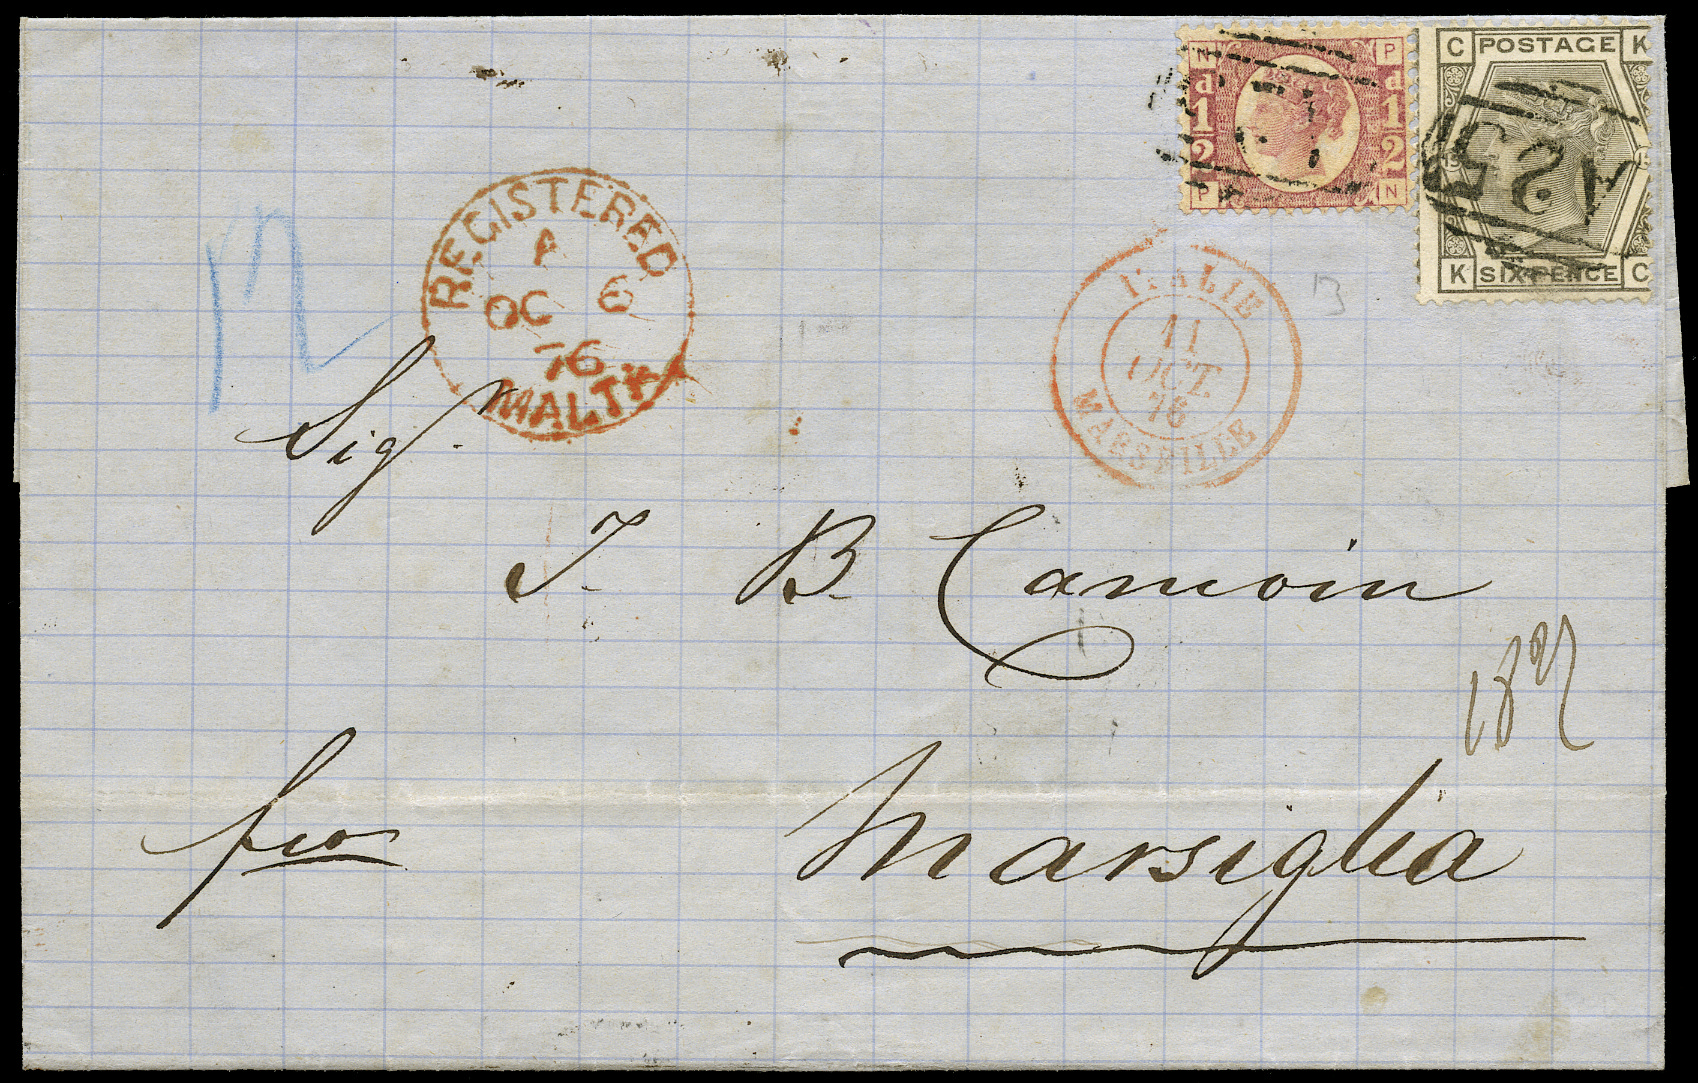 N P
d 1 2
d 1 2
P N
C POSTAGE K
K SIX PENCE C
A25
REGISTERED
A
OC 6
76
MALTA
ITALIE
11
OCT.
76
MARSEILLE
Sigr
J. B. Camoin
fco
Marsiglia